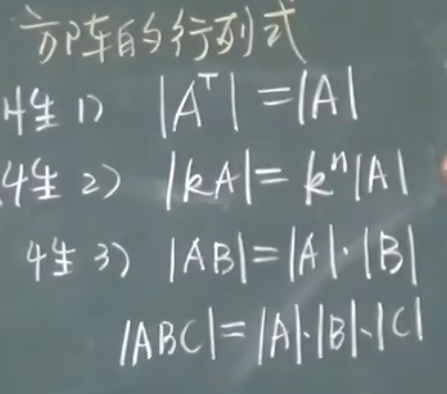 方阵的行列式
性 1) |Aᵀ| = |A|
性 2) |kA| = kⁿ|A|
性 3) |AB| = |A|·|B|
|ABC| = |A|·|B|·|C|